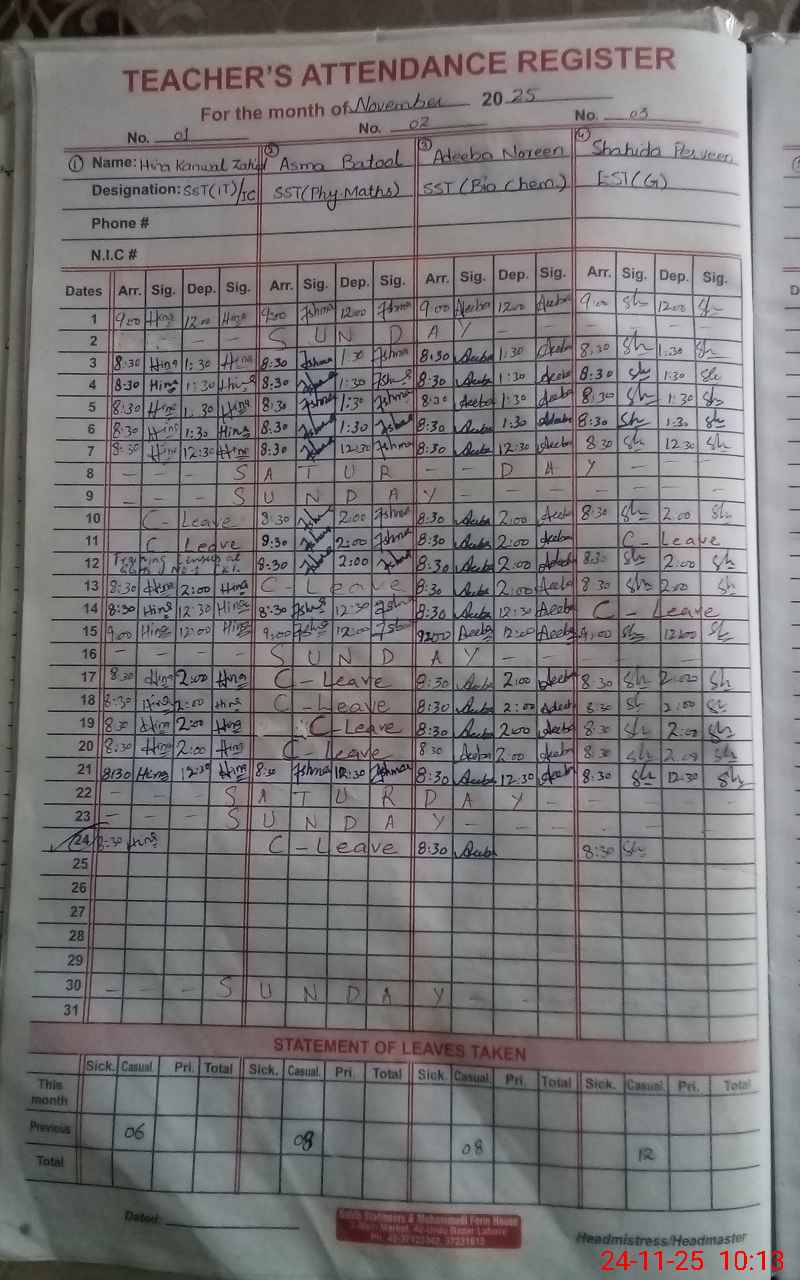 TEACHER'S ATTENDANCE REGISTER
For the month of November 2025
No. 01 No. 02 No. 03
① Name: Hina Kanwal Zahid ② Asma Batool ③ Adeeba Noreen ④ Shahida Perveen
Designation: SST(IT)/SC SST(Phy Maths) SST(Bio Chem.) EST(G)
Phone #
N.I.C #
Dates Arr. Sig. Dep. Sig. Arr. Sig. Dep. Sig. Arr. Sig. Dep. Sig. Arr. Sig. Dep. Sig.
1 9:00 Hina 12:00 Hina 9:00 12:00 9:00 Adeeba 12:00 Adeeba 9:00 Sh 12:00 Sh
2 - - - S U N D A Y - - - - -
3 8:30 Hina 1:30 Hina 8:30 1:30 8:30 Adeeba 1:30 Adeeba 8:30 Sh 1:30 Sh
4 8:30 Hina 1:30 Hina 8:30 1:30 8:30 Adeeba 1:30 Adeeba 8:30 Sh 1:30 Sh
5 8:30 Hina 1:30 Hina 8:30 1:30 8:30 Adeeba 1:30 Adeeba 8:30 Sh 1:30 Sh
6 8:30 Hina 1:30 Hina 8:30 1:30 8:30 Adeeba 1:30 Adeeba 8:30 Sh 1:30 Sh
7 8:30 Hina 12:30 Hina 8:30 12:30 8:30 Adeeba 12:30 Adeeba 8:30 Sh 12:30 Sh
8 - - - S A T U R - - D A Y - - -
9 - - - S U N D A Y - - - - - - -
10 C - Leave 8:30 2:00 8:30 Adeeba 2:00 Adeeba 8:30 Sh 2:00 Sh
11 C Leave 8:30 2:00 8:30 Adeeba 2:00 Adeeba C - Leave
12 Training at 8:30 2:00 8:30 Adeeba 2:00 Adeeba 8:30 Sh 2:00 Sh
13 8:30 Hina 2:00 Hina C - Leave 8:30 Adeeba 2:00 Adeeba 8:30 Sh 2:00 Sh
14 8:30 Hina 12:30 Hina 8:30 12:30 8:30 Adeeba 12:30 Adeeba C - Leave
15 9:00 Hina 12:00 Hina 9:00 12:00 9:00 Adeeba 12:00 Adeeba 9:00 Sh 12:00 Sh
16 - - - - S U N D A Y - - - -
17 8:30 Hina 2:00 Hina C - Leave 8:30 Adeeba 2:00 Adeeba 8:30 Sh 2:00 Sh
18 8:30 Hina 2:00 Hina C - Leave 8:30 Adeeba 2:00 Adeeba 8:30 Sh 2:00 Sh
19 8:30 Hina 2:00 Hina C - Leave 8:30 Adeeba 2:00 Adeeba 8:30 Sh 2:00 Sh
20 8:30 Hina 2:00 Hina C - Leave 8:30 Adeeba 2:00 Adeeba 8:30 Sh 2:00 Sh
21 8:30 Hina 12:30 Hina 8:30 12:30 8:30 Adeeba 12:30 Adeeba 8:30 Sh 12:30 Sh
22 - - - S A T U R D A Y - - - -
23 - - - S U N D A Y - - - -
24 8:30 Hina C - Leave 8:30 Adeeba 8:30 Sh
25
26
27
28
29
30 - - - S U N D A Y - -
31
STATEMENT OF LEAVES TAKEN
Sick. Casual. Pri. Total Sick. Casual. Pri. Total Sick. Casual. Pri. Total Sick. Casual. Pri. Total
This month
Previous 06 08 08 12
Total
Dated:
Headmistress/Headmaster
24-11-25 10:13